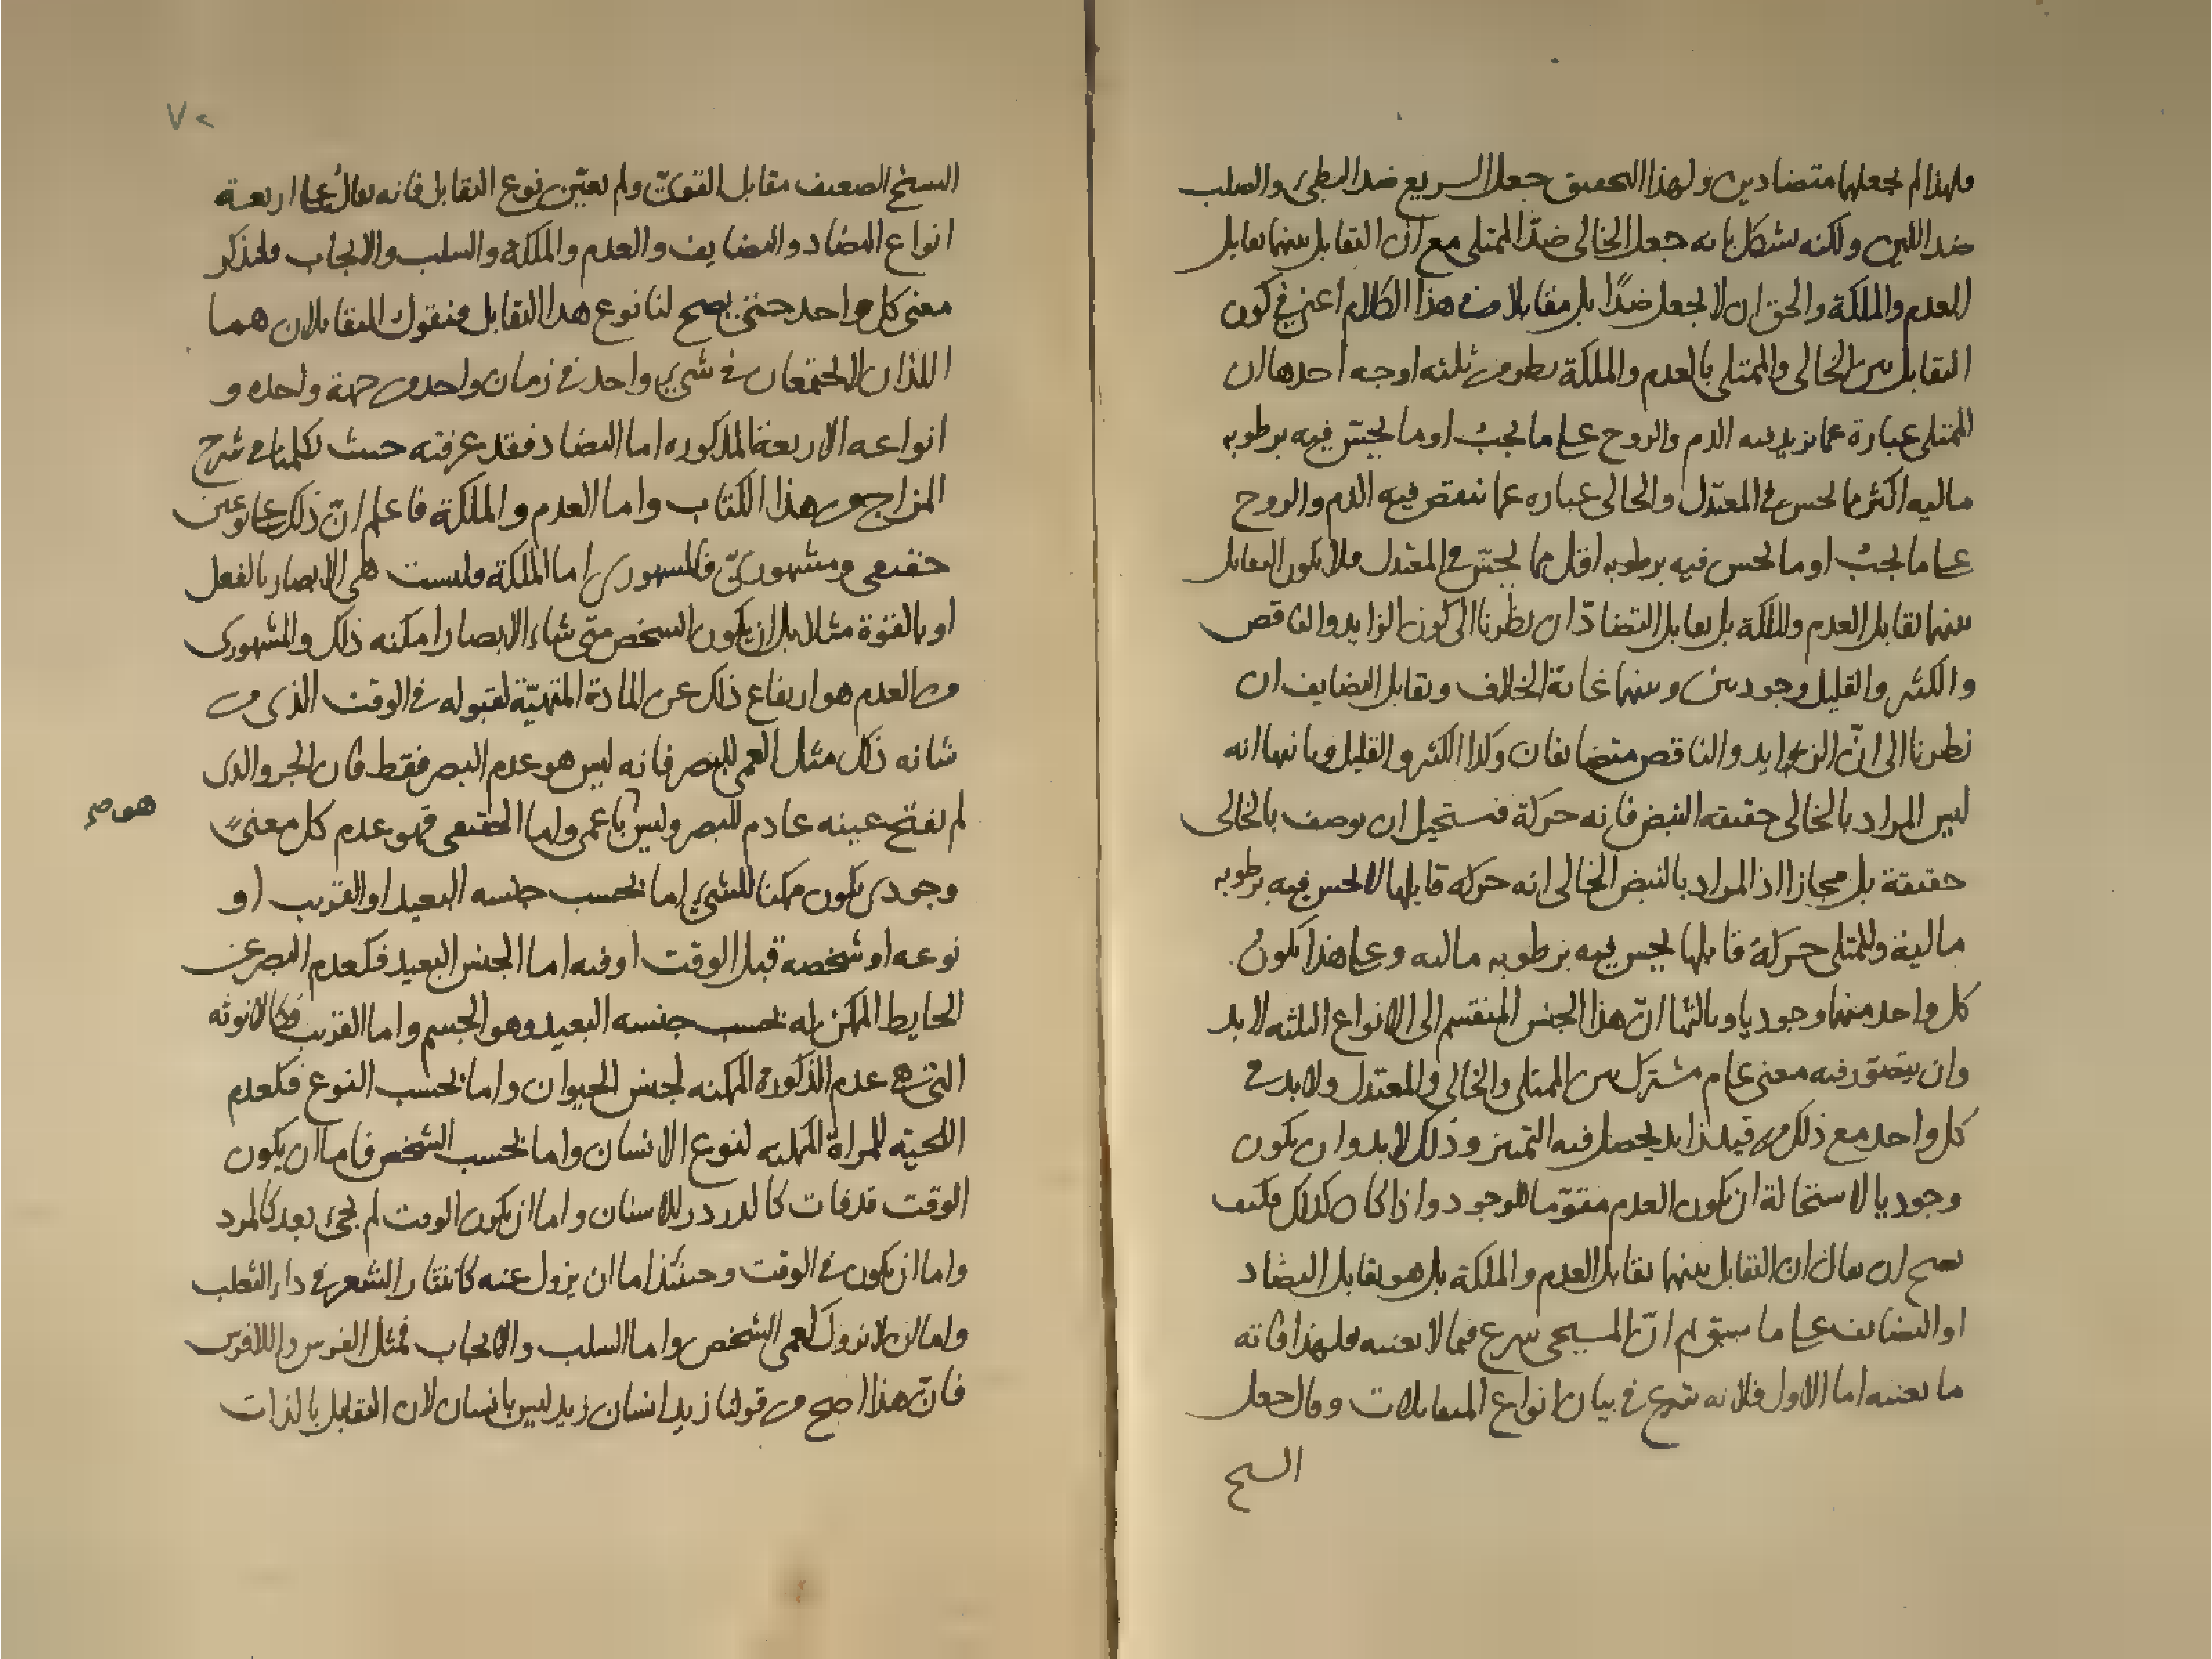 فلهذا لم يجعلهما متضادين ولهذا التحقيق جعل السريع ضد البطيء والصلب
ضد اللين ولكنه يشكل بانه جعل الخالى ضدّ الممتلى مع ان التقابل بينهما تقابل
العدم والملكة والحق ان لا يجعل ضدًا بل مقابلا وفى هذا الكلام اعنى فى كون
التقابل بين الخالى والممتلى بالعدم والملكة نظر من ثلثه اوجه احدها ان
الممتلى عبارة عما يزيد فيه الدم والروح على ما يجب او ما يحسّ فيه برطوبه
ماليه اكثر مما يحس فى المعتدل والخالى عباره عما ينقص فيه الدم والروح
على ما يجب او ما يحس فيه برطوبه اقل مما يحسّ فى المعتدل فلا يكون التقابل
بينهما تقابل العدم والملكة بل تقابل التضادّ ان نظرنا الى كون الزايد والناقص
والكثير والقليل وجوديين وبينهما غاية الخلاف وتقابل التضايف ان
نظرنا الى انّ الزايد والناقص متضايفان وكذا الكثير والقليل وثانيها انه
ليس المراد بالخالى حقيقه النبض فانه حركة فيستحيل ان يوصف بالخالى
حقيقة بل مجازا اذ المراد بالنبض الخالى انه حركه قابلها لا يحس فيه برطوبه
مالية وللمتلى حركة قابلها يحس فيه برطوبه ماليه وعلى هذا يكون
كل واحد منهما وجوديا وثالثها انّ هذا الجنس المنقسم الى الانواع الثلثه لا بد
وان يتصوّر فيه معنى عام مشترك بين الممتلى والخالى والمعتدل ولا بد فى
كل واحد مع ذلك من قيد زايد يحصل فيه التميز وذلك لا بد وان يكون
وجوديا لاستحالة ان يكون العدم مقوّما للوجود واذا كان كذلك فكيف
يصح ان يقال ان التقابل بينهما تقابل العدم والملكة بل هو تقابل التضاد
او التضايف على ما سبق ثم انّ المسيحى شرع فيما لا يعنيه فلهذا فاته
ما يعنيه اما الاول فلانه شرع فى بيان انواع المتقابلات وقال جعل
السح
٧٢
السيخ الضعيف مقابل القوىّ ولم يعيّن نوع التقابل فانه يقال على اربعة
انواع التضاد والتضايف والعدم والملكة والسلب والايجاب فلنذكر
معنى كل واحد حتى يصح لنا نوع هذا التقابل فنقول المتقابلان هما
اللذان لا يجتمعان فى شيء واحد فى زمان واحد من جهة واحده و
انواعه الاربعة المذكوره اما التضاد فقد عرفته حيث تكلمنا فى شرح
المزاج من هذا الكتاب واما العدم والملكة فاعلم انّ ذلك على نوعين
حقيقى ومشهورىّ فالمشهورى اما الملكة فليست هى الابصار بالفعل
او بالقوة مثلا بل ان يكون الشخص متى شاء الابصار امكنه ذلك والمشهورى
من العدم هو ارتفاع ذلك عن المادة المتهيّئة لقبوله فى الوقت الذى من
شانه ذلك مثل العمى للبصر فانه ليس هو عدم البصر فقط فان الجرو الذى
لم يفتح عينه عادم للبصر وليس باعمى واما الحقيقى فهو عدم كل معنىً
هو صح
وجودى يكون ممكنا للشيء اما بحسب جنسه البعيد او القريب او
نوعه او شخصه قبل الوقت او فيه اما الجنس البعيد فكعدم البصر عن
الحايط الممكن له بحسب جنسه البعيد وهو الجسم واما القريب فكالانوثه
التى هى عدم الذكورة الممكنه لجنس الحيوان واما بحسب النوع فكعدم
اللحيه للمراة الممكنه لنوع الانسان واما بحسب الشخص فاما ان يكون
الوقت قد فات كالدرد للاسنان واما ان يكون الوقت لم يجئ بعد كالمرد
واما ان يكون فى الوقت وحينئذ اما ان يزول عنه كانتثار الشعر فى داء الثعلب
واما ان لا يزول كعمى الشخص واما السلب والايجاب فمثل الفرس واللافرس
فانّ هذا اصح من قولنا زيد انسان زيد ليس بانسان لان التقابل بالذات